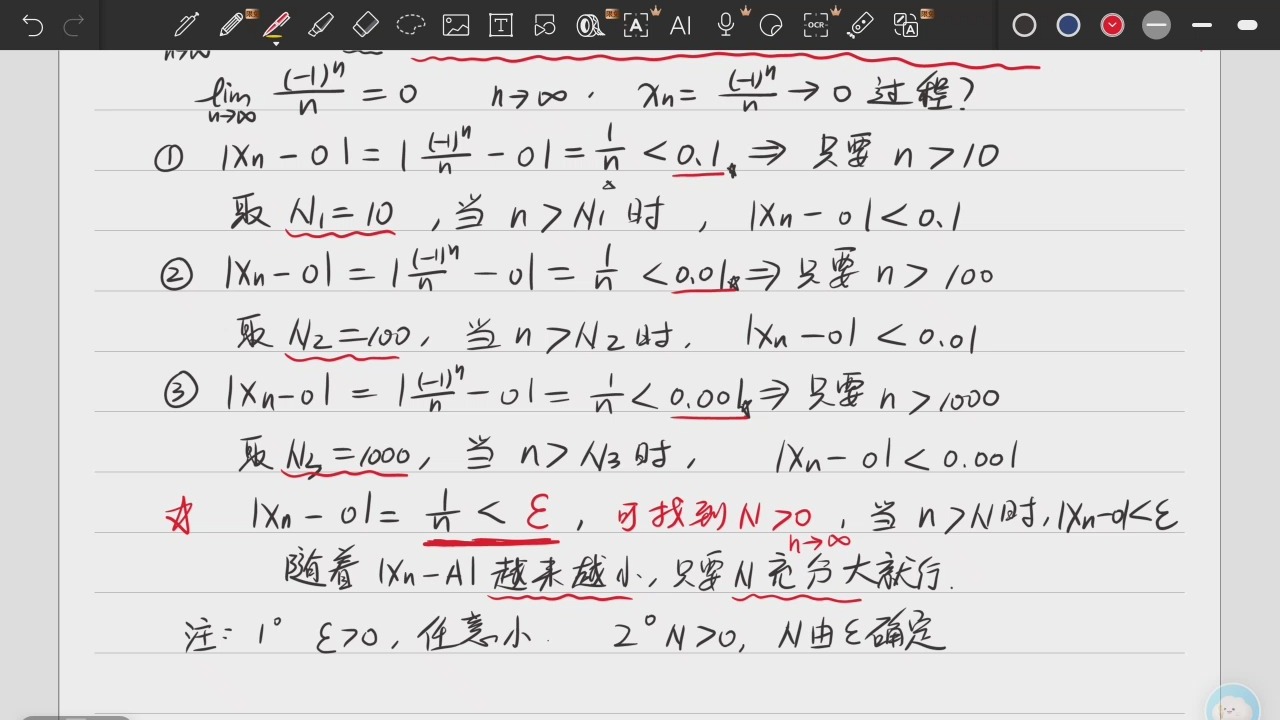 lim n→∞ (-1)ⁿ/n = 0 n→∞. xn = (-1)ⁿ/n → 0 过程?
① |xn - 0| = |(-1)ⁿ/n - 0| = 1/n < 0.1 ⇒ 只要 n > 10
取 N1 = 10 , 当 n > N1 时 , |xn - 0| < 0.1
② |xn - 0| = |(-1)ⁿ/n - 0| = 1/n < 0.01 ⇒ 只要 n > 100
取 N2 = 100, 当 n > N2 时, |xn - 0| < 0.01
③ |xn - 0| = |(-1)ⁿ/n - 0| = 1/n < 0.001 ⇒ 只要 n > 1000
取 N3 = 1000, 当 n > N3 时, |xn - 0| < 0.001
☆ |xn - 0| = 1/n < ε , 可找到 N > 0 , 当 n > N 时, |xn - 0| < ε
n→∞
随着 |xn - A| 越来越小, 只要 N 充分大就行.
注: 1° ε > 0, 任意小. 2° N > 0, N 由 ε 确定